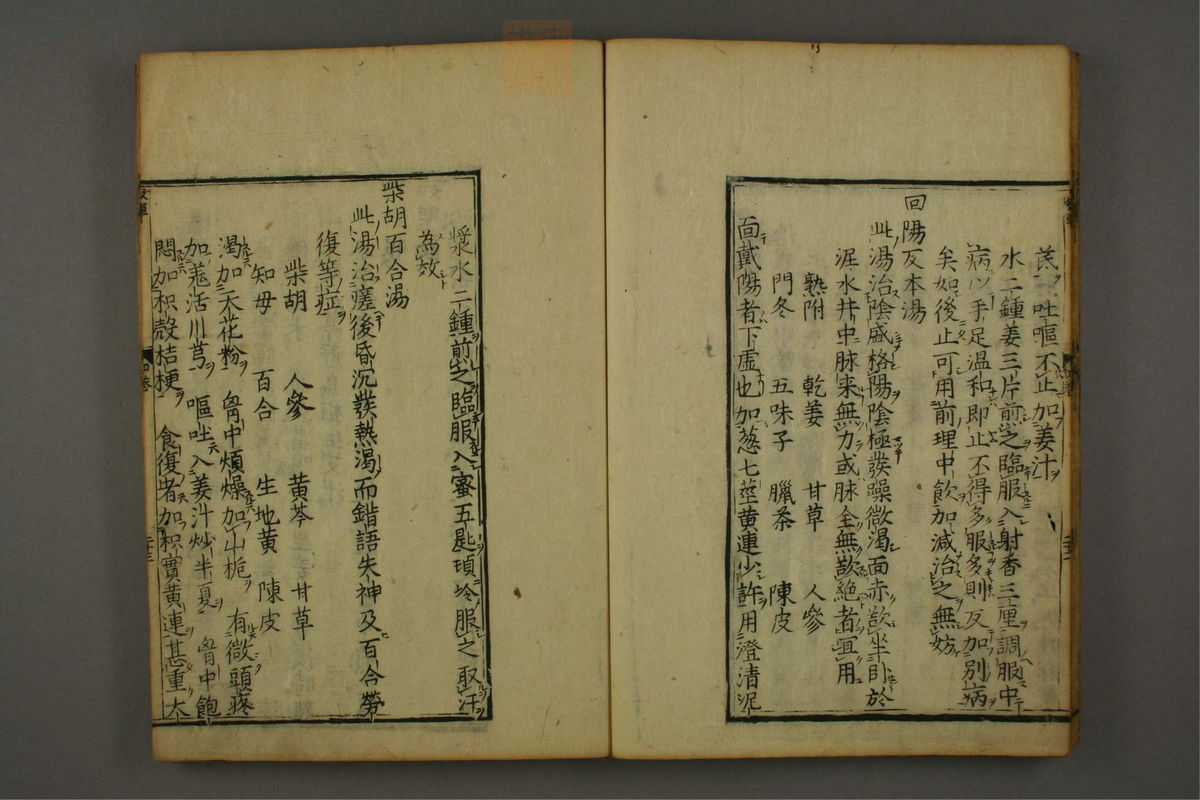 茋 吐嘔不止加姜汁
水二鍾姜三片煎之臨服入射香三厘調服中
病以手足温和即止不得多服多則反加別病
矣如後止可用前理中飲加減治之無妨
回陽反本湯
此湯治陰盛格陽陰極發躁微渴面赤欲坐卧於
泥水井中脉来無力或脉全無欲絶者宜用
熟附 乾姜 甘草 人參
門冬 五味子 臘茶 陳皮
面戴陽者下虚也加葱七莖黄連少許用澄清泥
漿水二鍾煎之臨服入蜜五匙頃冷服之取汗
為效
柴胡百合湯
此湯治瘥後昏沉發熱渴而錯語失神及百合勞
復等症
柴胡 人參 黄芩 甘草
知母 百合 生地黄 陳皮
渴加天花粉 胷中煩燥加山梔 有微頭疼
加羌活川芎 嘔吐入姜汁炒半夏 胷中飽
悶加枳殻桔梗 食復者加枳實黄連甚重大